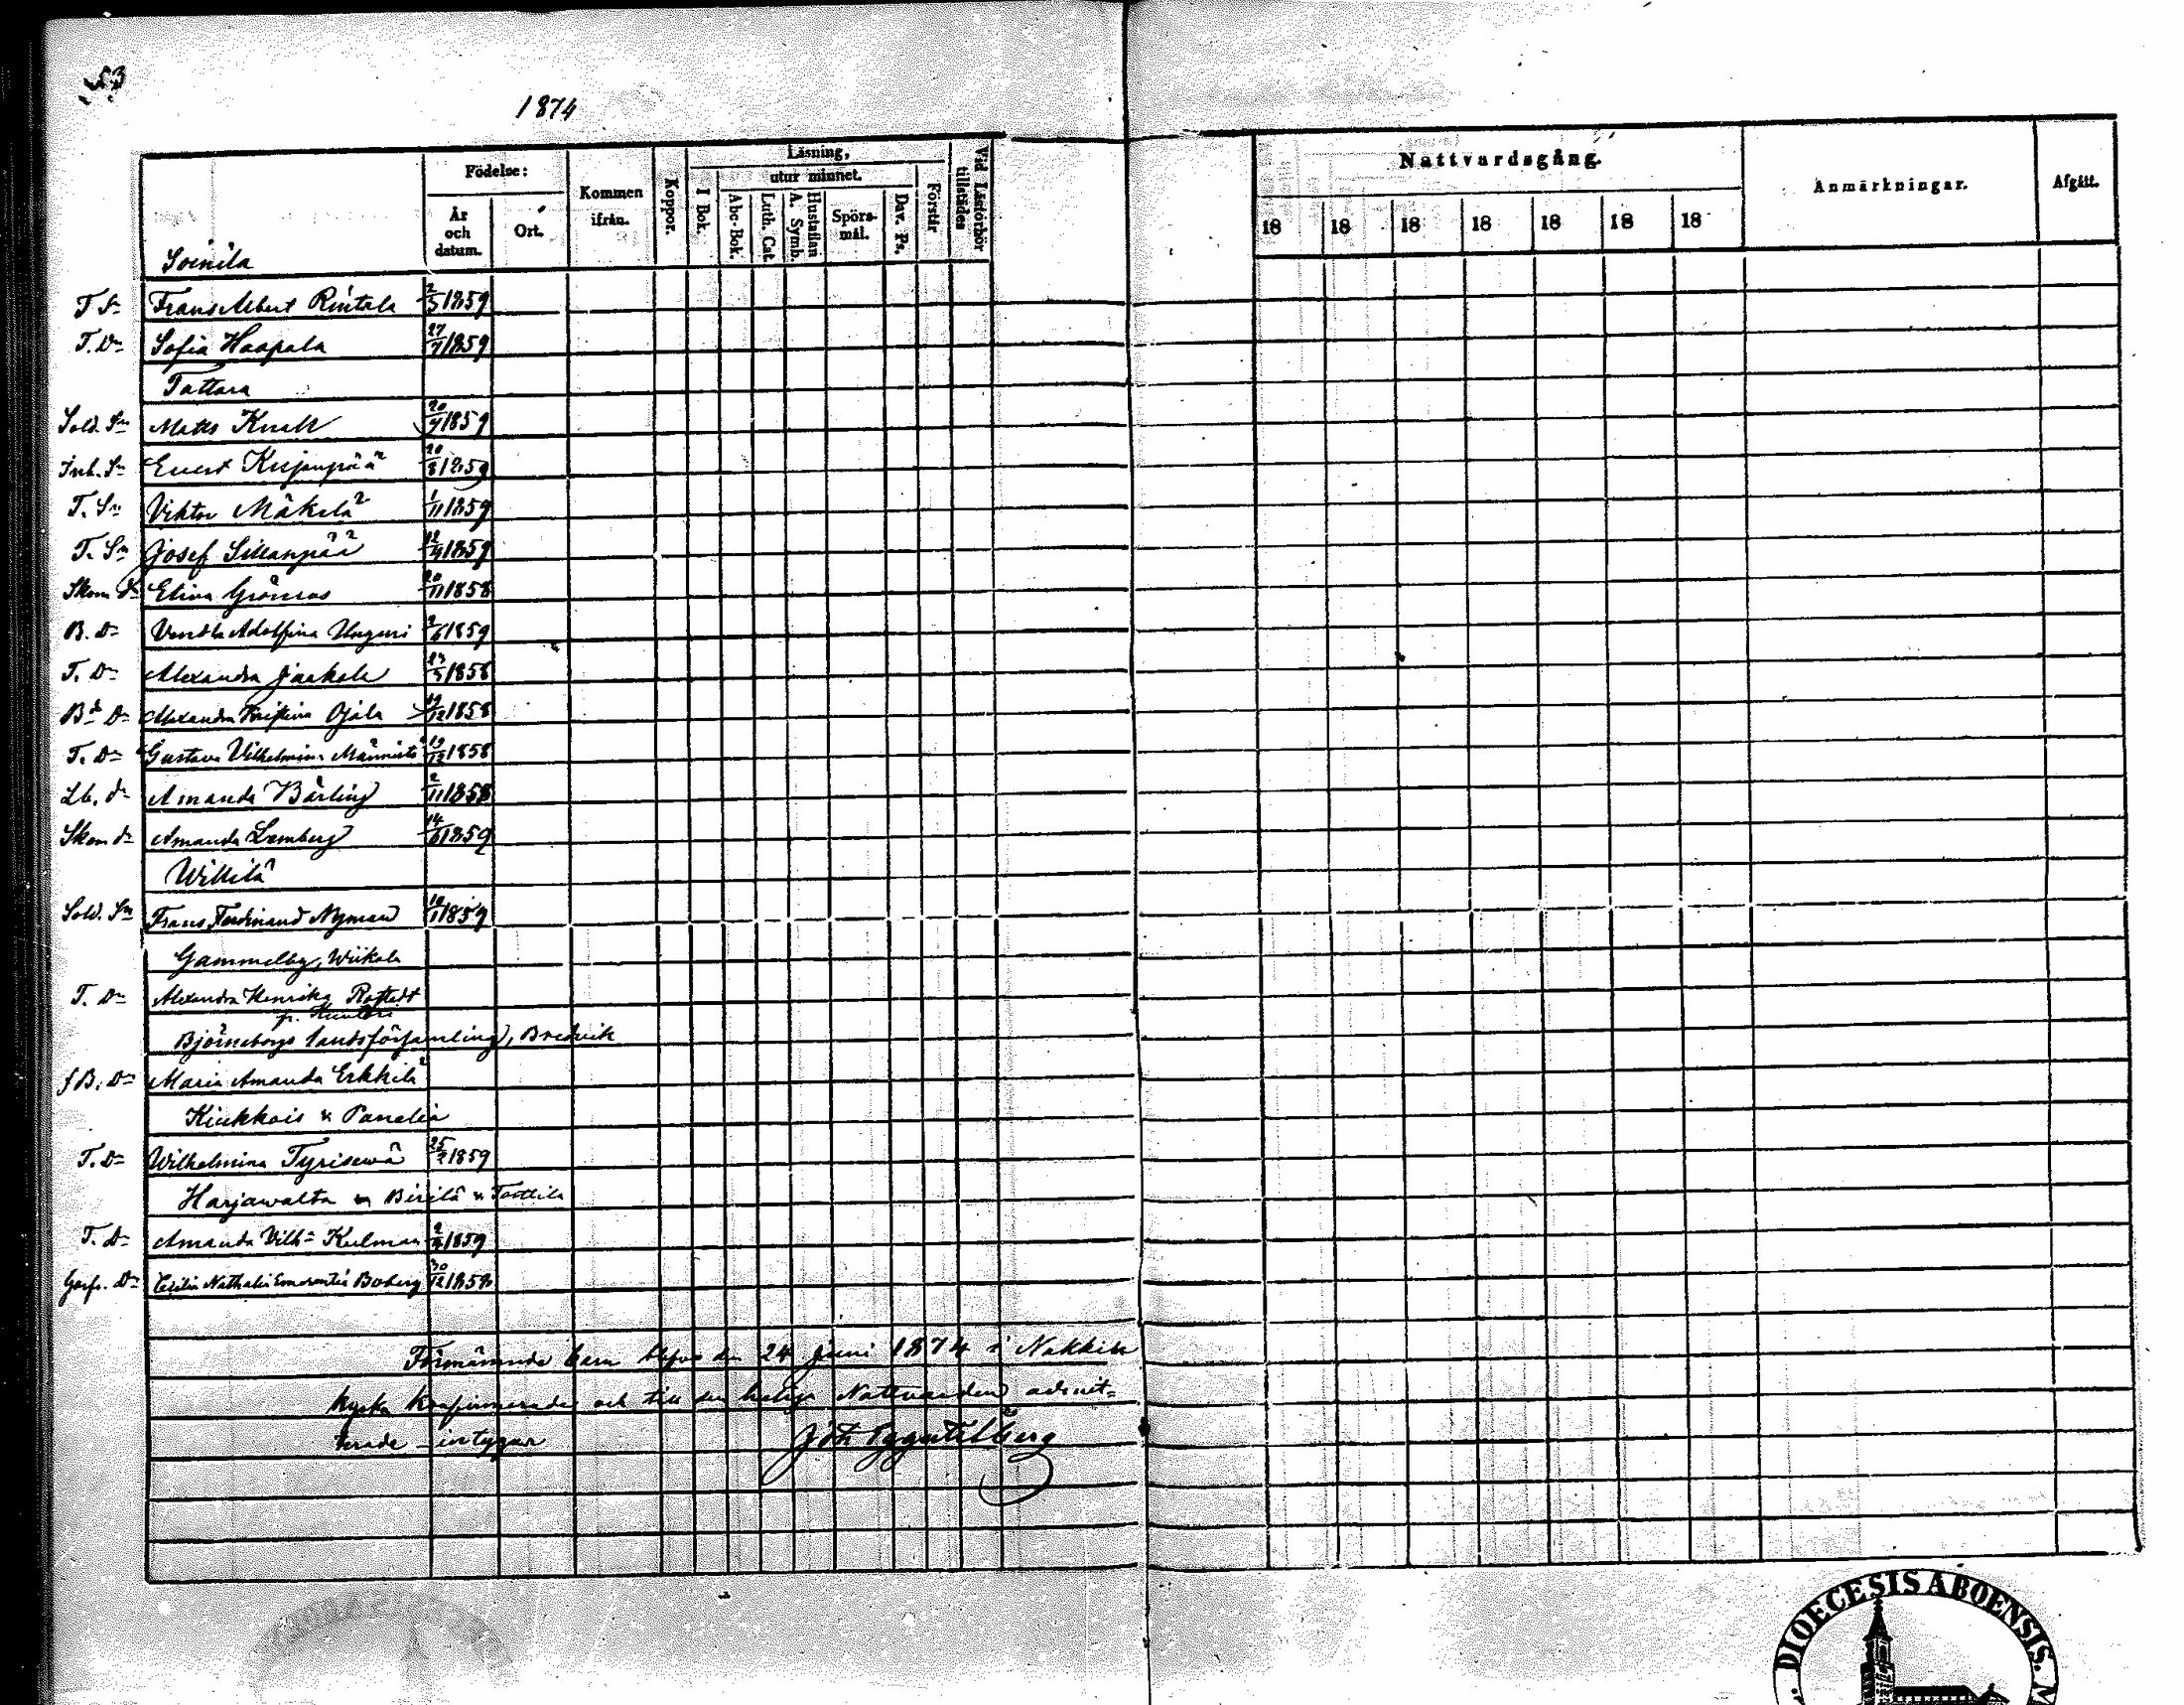 53
1874
Födelse:
År och datum.
Ort.
Kommen ifrån.
Koppor.
Läsning,
I Bok.
utur minnet.
Abc-Bok.
Luth. Cat
Hustaflan A. Symb.
Spörs-mål.
Dav. Ps.
Förstår
Vid Läsförhör tillstädes
Nattvardsgång.
18 18 18 18 18 18 18
Anmärkningar.
Afgått.
Soinila
T Sn Frans Albert Rintala 2/5 1859
T. Dn Sofia Haapala 27/7 1859
Tattara
Sold. Sn Matts Knall 20/7 1859
Inh. Sn Evert Kujanpää 20/8 1859
T. Sn Viktor Mäkelä 1/11 1859
T. Sn Josef Sillanpää 12/9 1859
Skom dn Elina Grönroos 20/11 1858
B. Dn Vendla Adolfina Unguri 2/6 1859
T. Dn Alexandra Jaakola 23/5 1858
Bd Dn Alexandra Kristina Ojala 19/12 1858
T. Dn Gustava Vilhelmina Männistö 19/12 1858
Lb. dn Amanda Bärling 2/11 1858
Skom dn Amanda Lemberg 14/6 1859
Willilä
Sold. Sn Frans Ferdinand Nyman 10/1 1859
Gammelby, Wiikala
T. Dn Alexandra Henrika Rostedt
Björneborgs landsförsamling, Bredvik
f B. Dn Maria Amanda Erkkilä
Kiukkois & Panelia
T. Dn Wilhelmina Tyrisevä 25/2 1859
Harjavalta & Birilä & Torttila
T. Dn Amanda Vilh:a Kulman 2/4 1859
Cecilia Nathalia Emerentia Boberg 30/12 1858
Förnämnde barn blefvo den 24 Juni 1874 i Nakkila
kyrka konfirmerade och till den heliga Nattvarden admit=
terade intygar
DIOECESIS ABOENSIS.